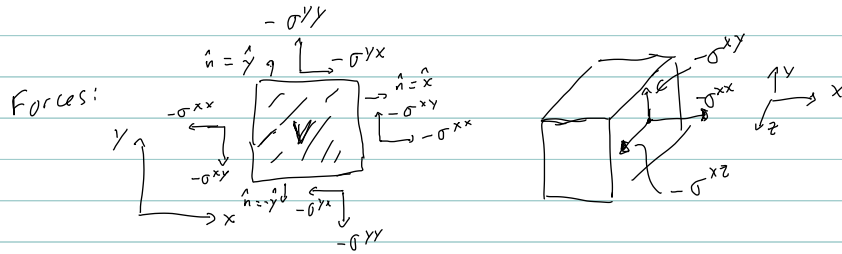 -σ^yy
n̂ = ŷ
-σ^yx
n̂ = x̂
Forces:
-σ^xx
-σ^xy
-σ^xx
V
-σ^xy
y
x
n̂ = -ŷ
-σ^yx
-σ^yy
-σ^xy
-σ^xx
-σ^xz
y
x
z